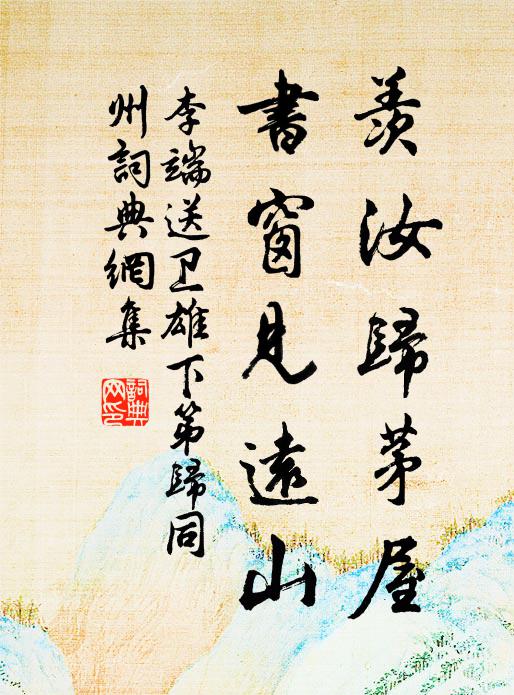 羨汝歸茅屋
書窗見遠山
李端送卫雄下第歸同
州詞典網集
詞典网印